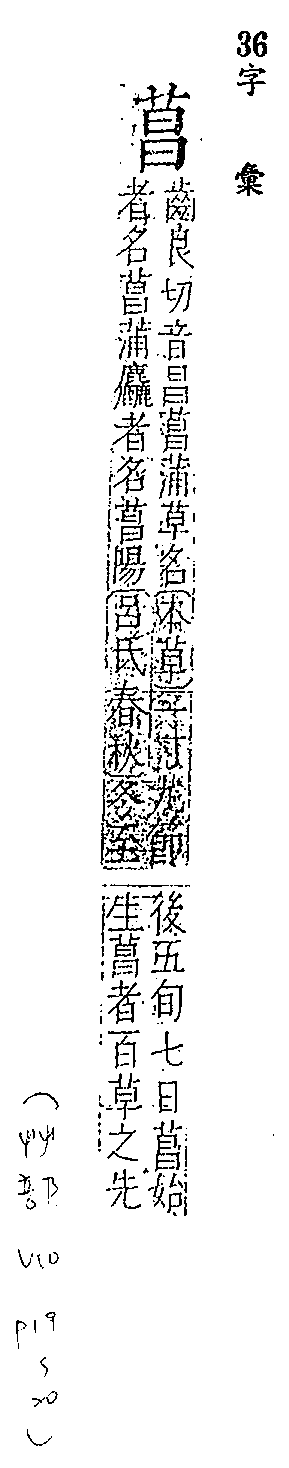 36字彙
菖
齒良切音昌菖蒲草名本草一寸九節
者名菖蒲麤者名菖陽呂氏春秋冬至
後五旬七日菖始
生菖者百草之先
(艸部 V10 P19~20)